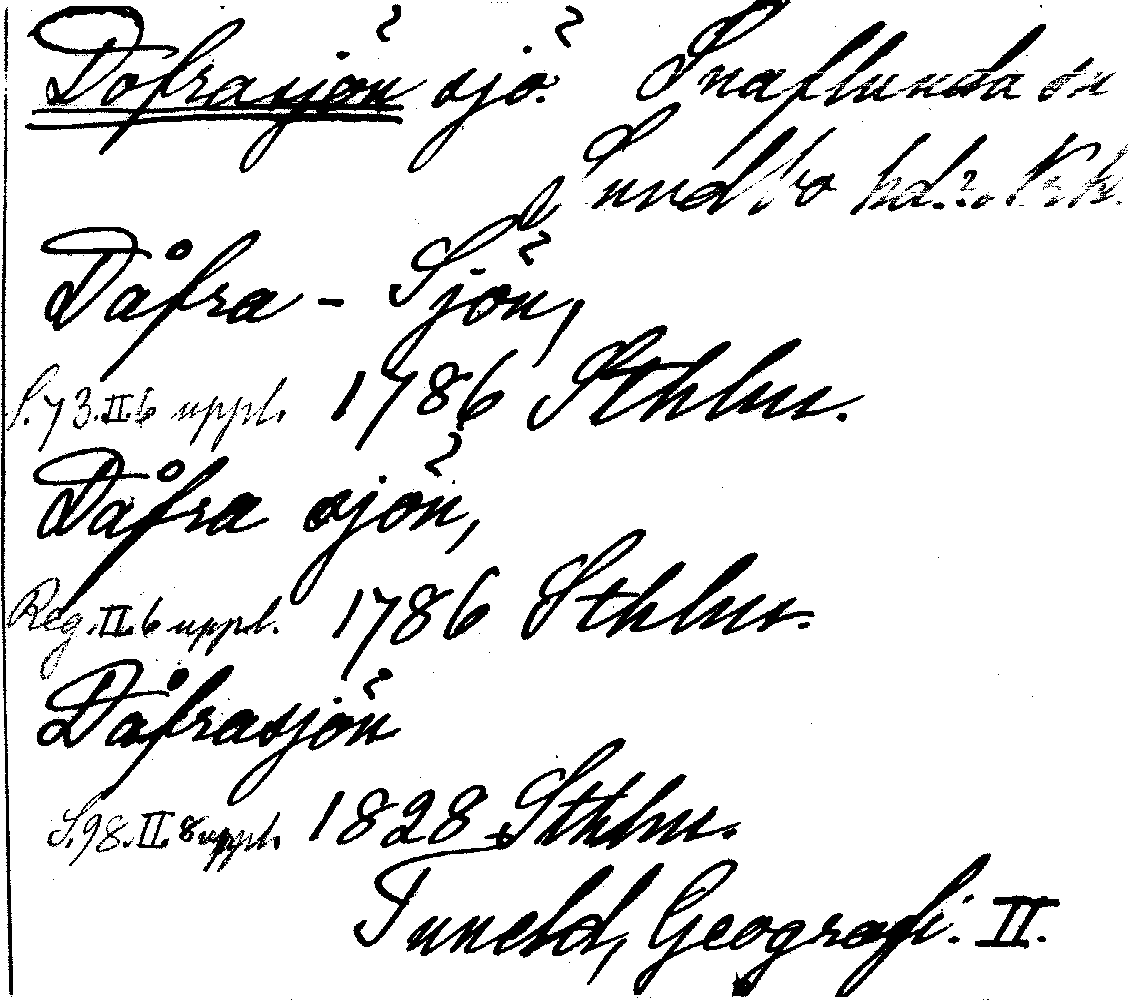 Dofrasjön sjö. Snaflunda sn
Sundbo hd. Nrke.
Dåfra - Sjön,
S. 73. II. 6 uppl. 1786 Sthlm.
Dåfra sjön,
Reg. II. 6 uppl. 1786 Sthlm.
Dåfrasjön
S. 98. II. 8 uppl. 1828 Sthlm.
Tuneld, Geografi. II.